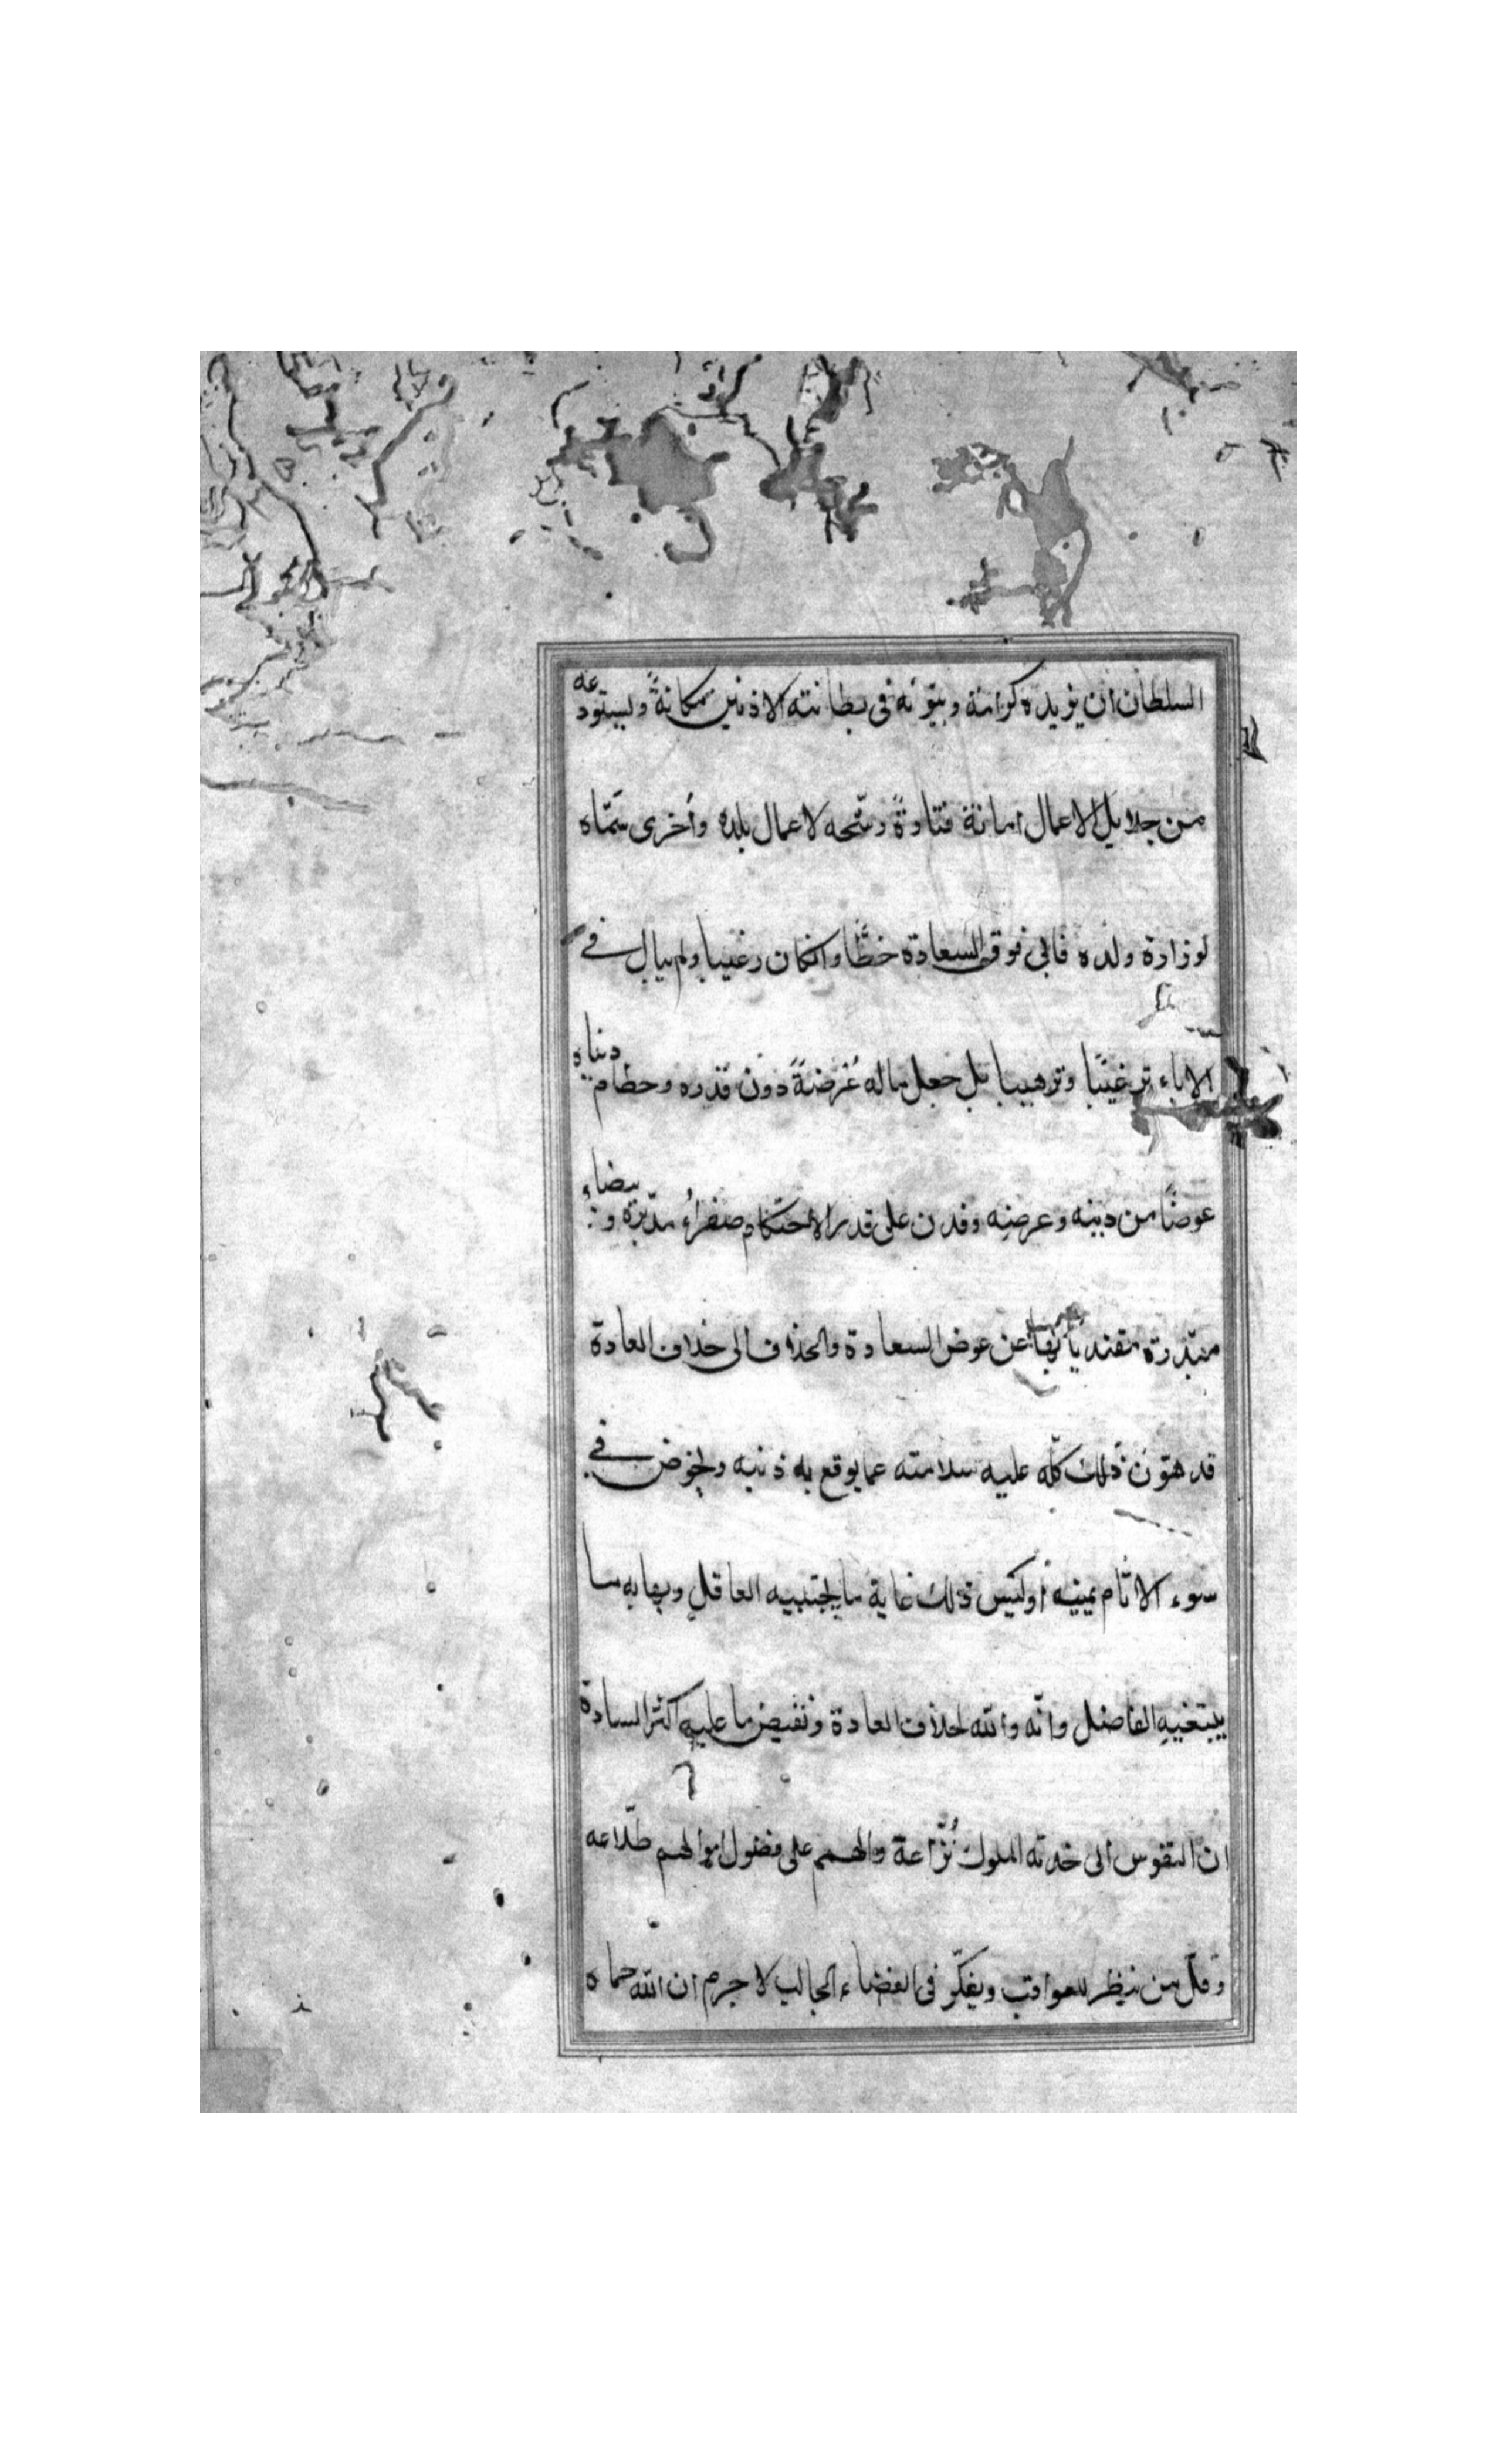 السلطان ان يزيده كرامة ويبوّئه فى بطانته الادنين مكانةً ويستودعه
من جلايل الاعمال امانة فتارةً رشّحه لاعمال بلده وأخرى سمّاه
لوزارة ولده فابى فوق السعادة حظًّا وانكان رغيبا ولم يبال فى
الاباء ترغيبًا وترهيبا بل جعل ماله عُرضةً دون قدره وحطام دنياه
عوضًا من دينه وعرضه وفدى على قدر الاحتكام صفراءُ مدبّره وبيضاء
مبدّرة مفتديا بها عن عوض السعادة والحذف الى خلاف العادة
قد هوّن ذلك كلّه عليه سلامته عما يوقع به ذنبه ويخوض فى
سوء الاثام يمينه أوليس ذلك غاية ما يجتبيه العاقل ونهاية ما
يبتغيه الفاضل وانّه والله لخلاف العادة ونقيض ما عليه اكثر السادة
ان النفوس الى خدمة الملوك نُزّاعة والهمم على فضول اموالهم طلّاعه
وقلّ من ينظر للعواقب ويفكّر فى القضاء الجالب لا جرم ان الله حماه